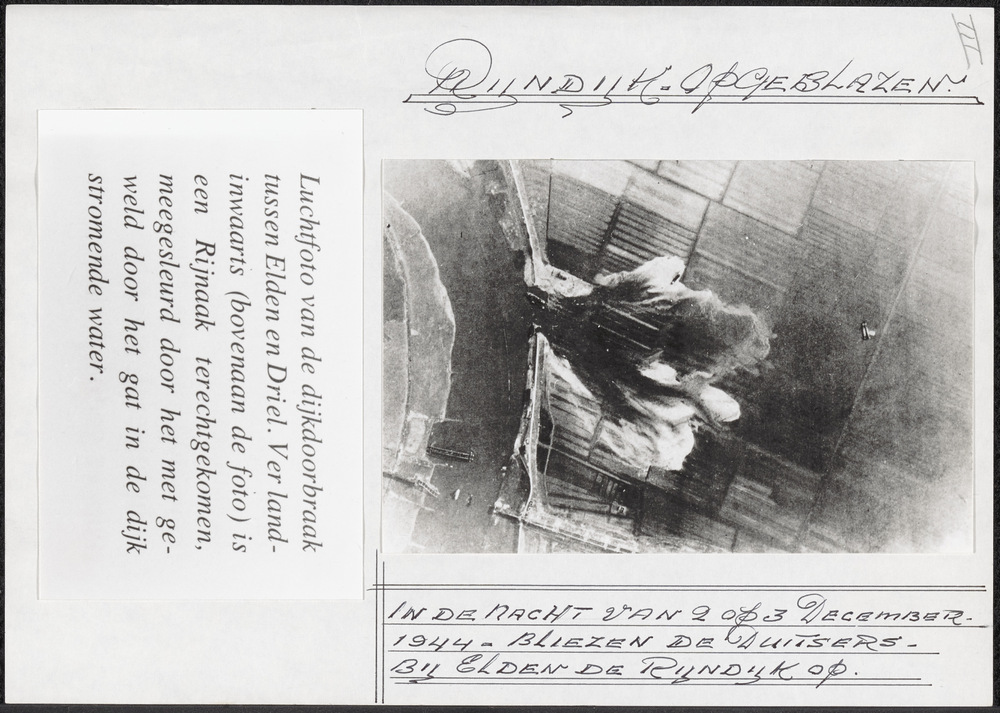 III
RIJNDIJK. OPGEBLAZEN.
Luchtfoto van de dijkdoorbraak
tussen Elden en Driel. Ver land-
inwaarts (bovenaan de foto) is
een Rijnaak terechtgekomen,
meegesleurd door het met ge-
weld door het gat in de dijk
stromende water.
IN DE NACHT VAN 2 OP 3 DECEMBER.
1944 - BLIEZEN DE DUITSERS -
BIJ ELDEN DE RIJNDIJK OP.